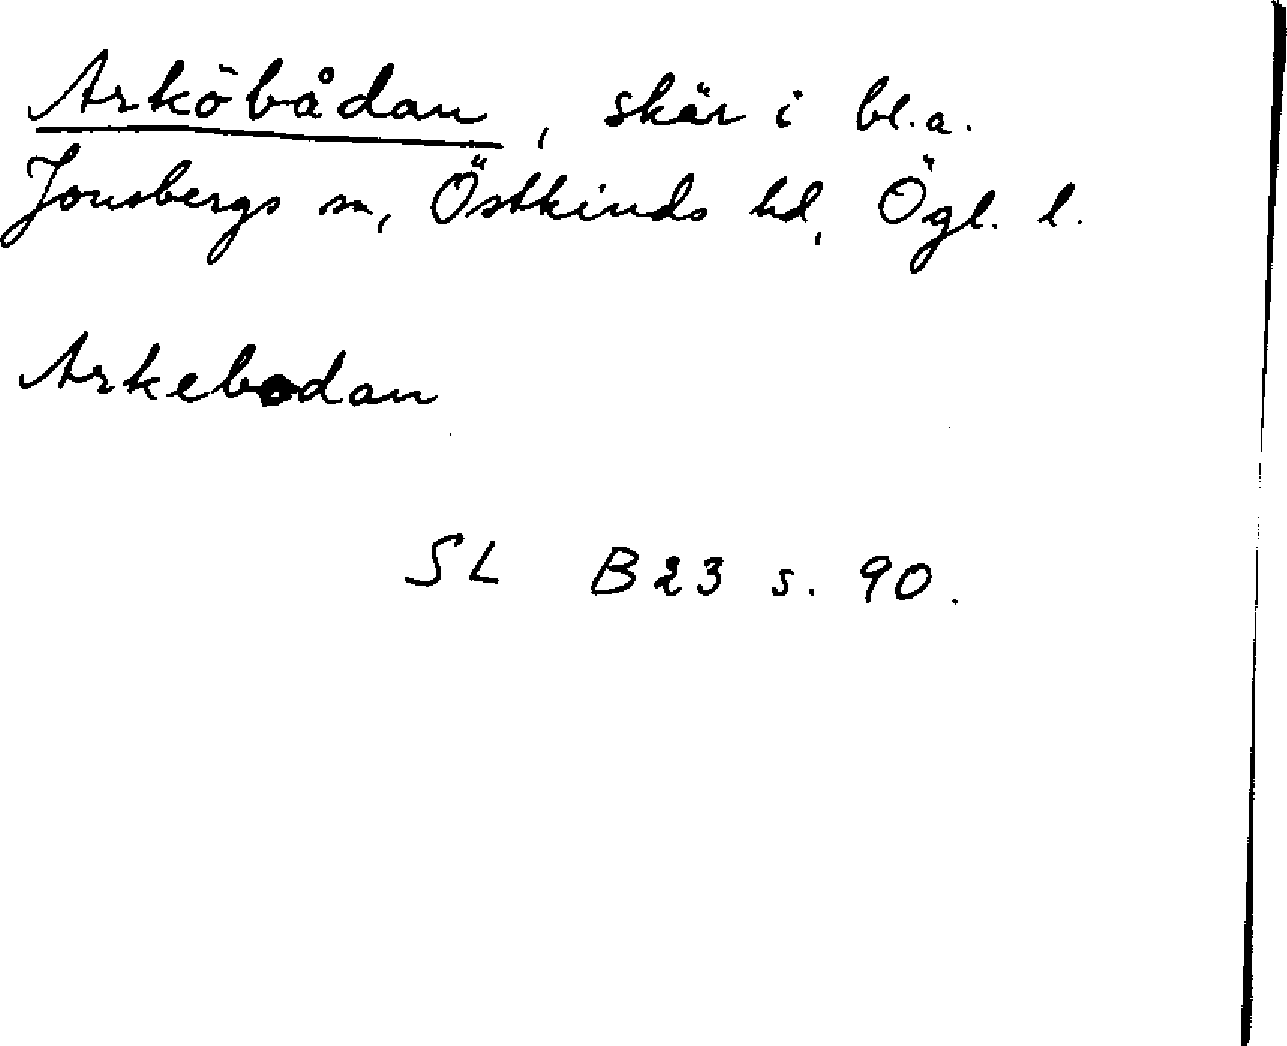 Arköbådan, skär i bl.a.
Jonsbergs sn, Östkinds hd, Ögl. l.
Arkebodan
SL B23 s. 90.